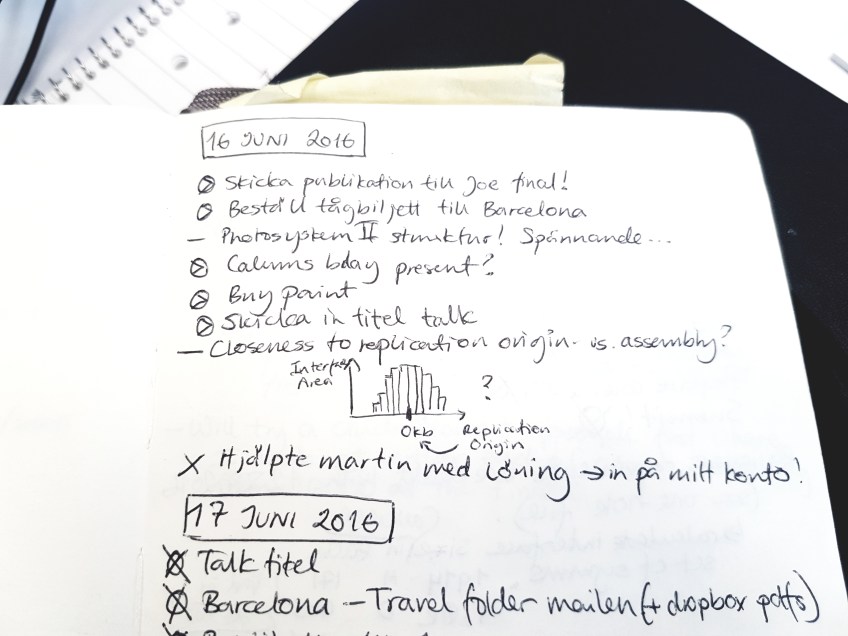 16 JUNI 2016
Skicka publikation till Joe final!
Beställ tågbiljett till Barcelona
— Photosystem II struktur! Spännande...
Calums bday present?
Buy paint
Skicka in titel talk
— Closeness to replication origin - vs. assembly?
Interface
Area
?
0kb
Replication
Origin
X Hjälpte martin med lösning → in på mitt konto!
17 JUNI 2016
Talk titel
Barcelona — Travel folder mailen (+ dropbox pdfs)